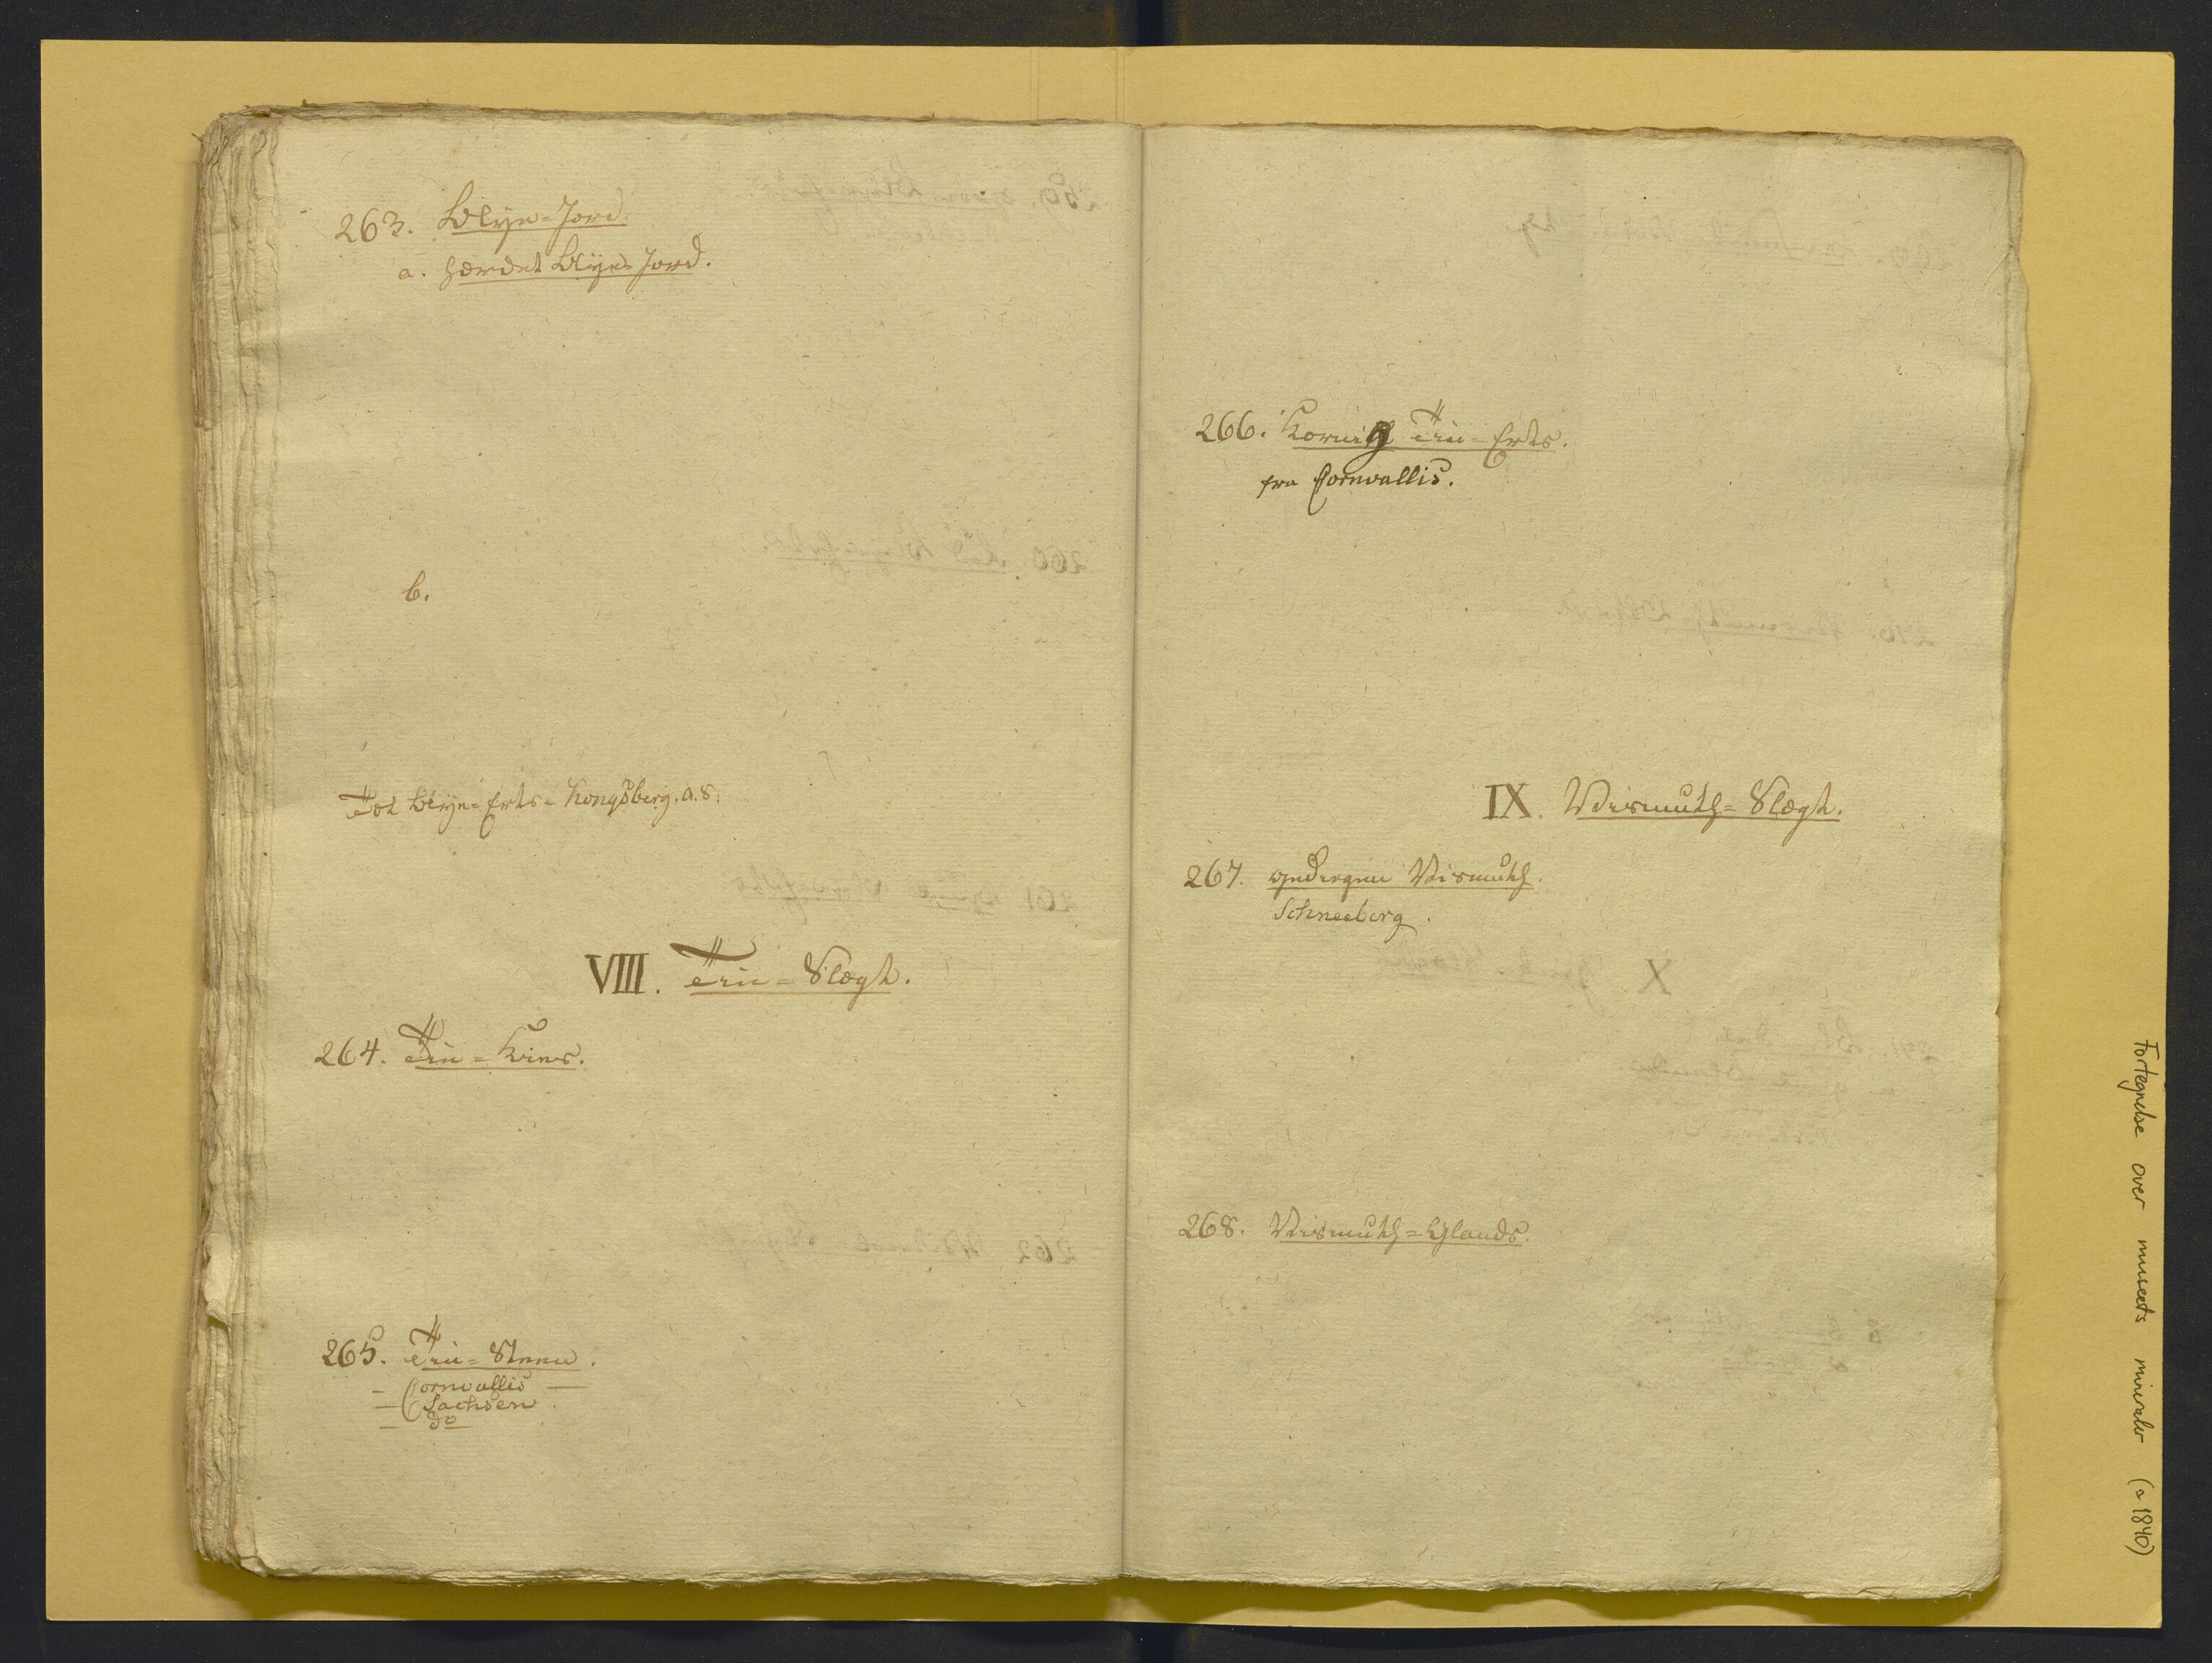 263. Blye-Jord.
a. hærdet Blye Jord.
b.
Tot Blye-Erts- Kongsberg. a. 8.
VIII. Tin-Slægt.
264. Tin-Kies.
265. Tin-Steen.
- Cornvallis -
- Sachsen
- do
266. Kornig Tin-Erts.
fra Cornvallis.
IX. Vismuth-Slægt.
267. Gediegen Vismuth.
Schneeberg.
268. Vismuth-Glands.
Fortegnelse over museets mineraler (a 1840)